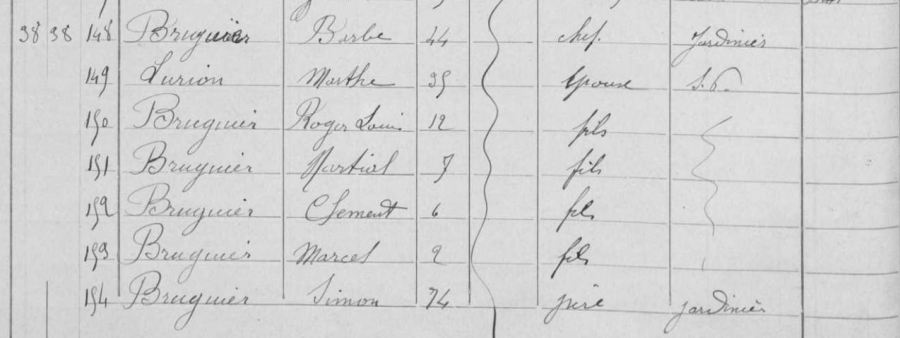 38 38 148 Bruguier Barbe 44 chef. Jardinier
149 Lurion Marthe 35 épouse S.P.
150 Bruguier Roger Louis 12 fils
151 Bruguier Martial 7 fils
152 Bruguier Clement 6 fils
153 Bruguier Marcel 2 fils
154 Bruguier Simon 74 père jardinier